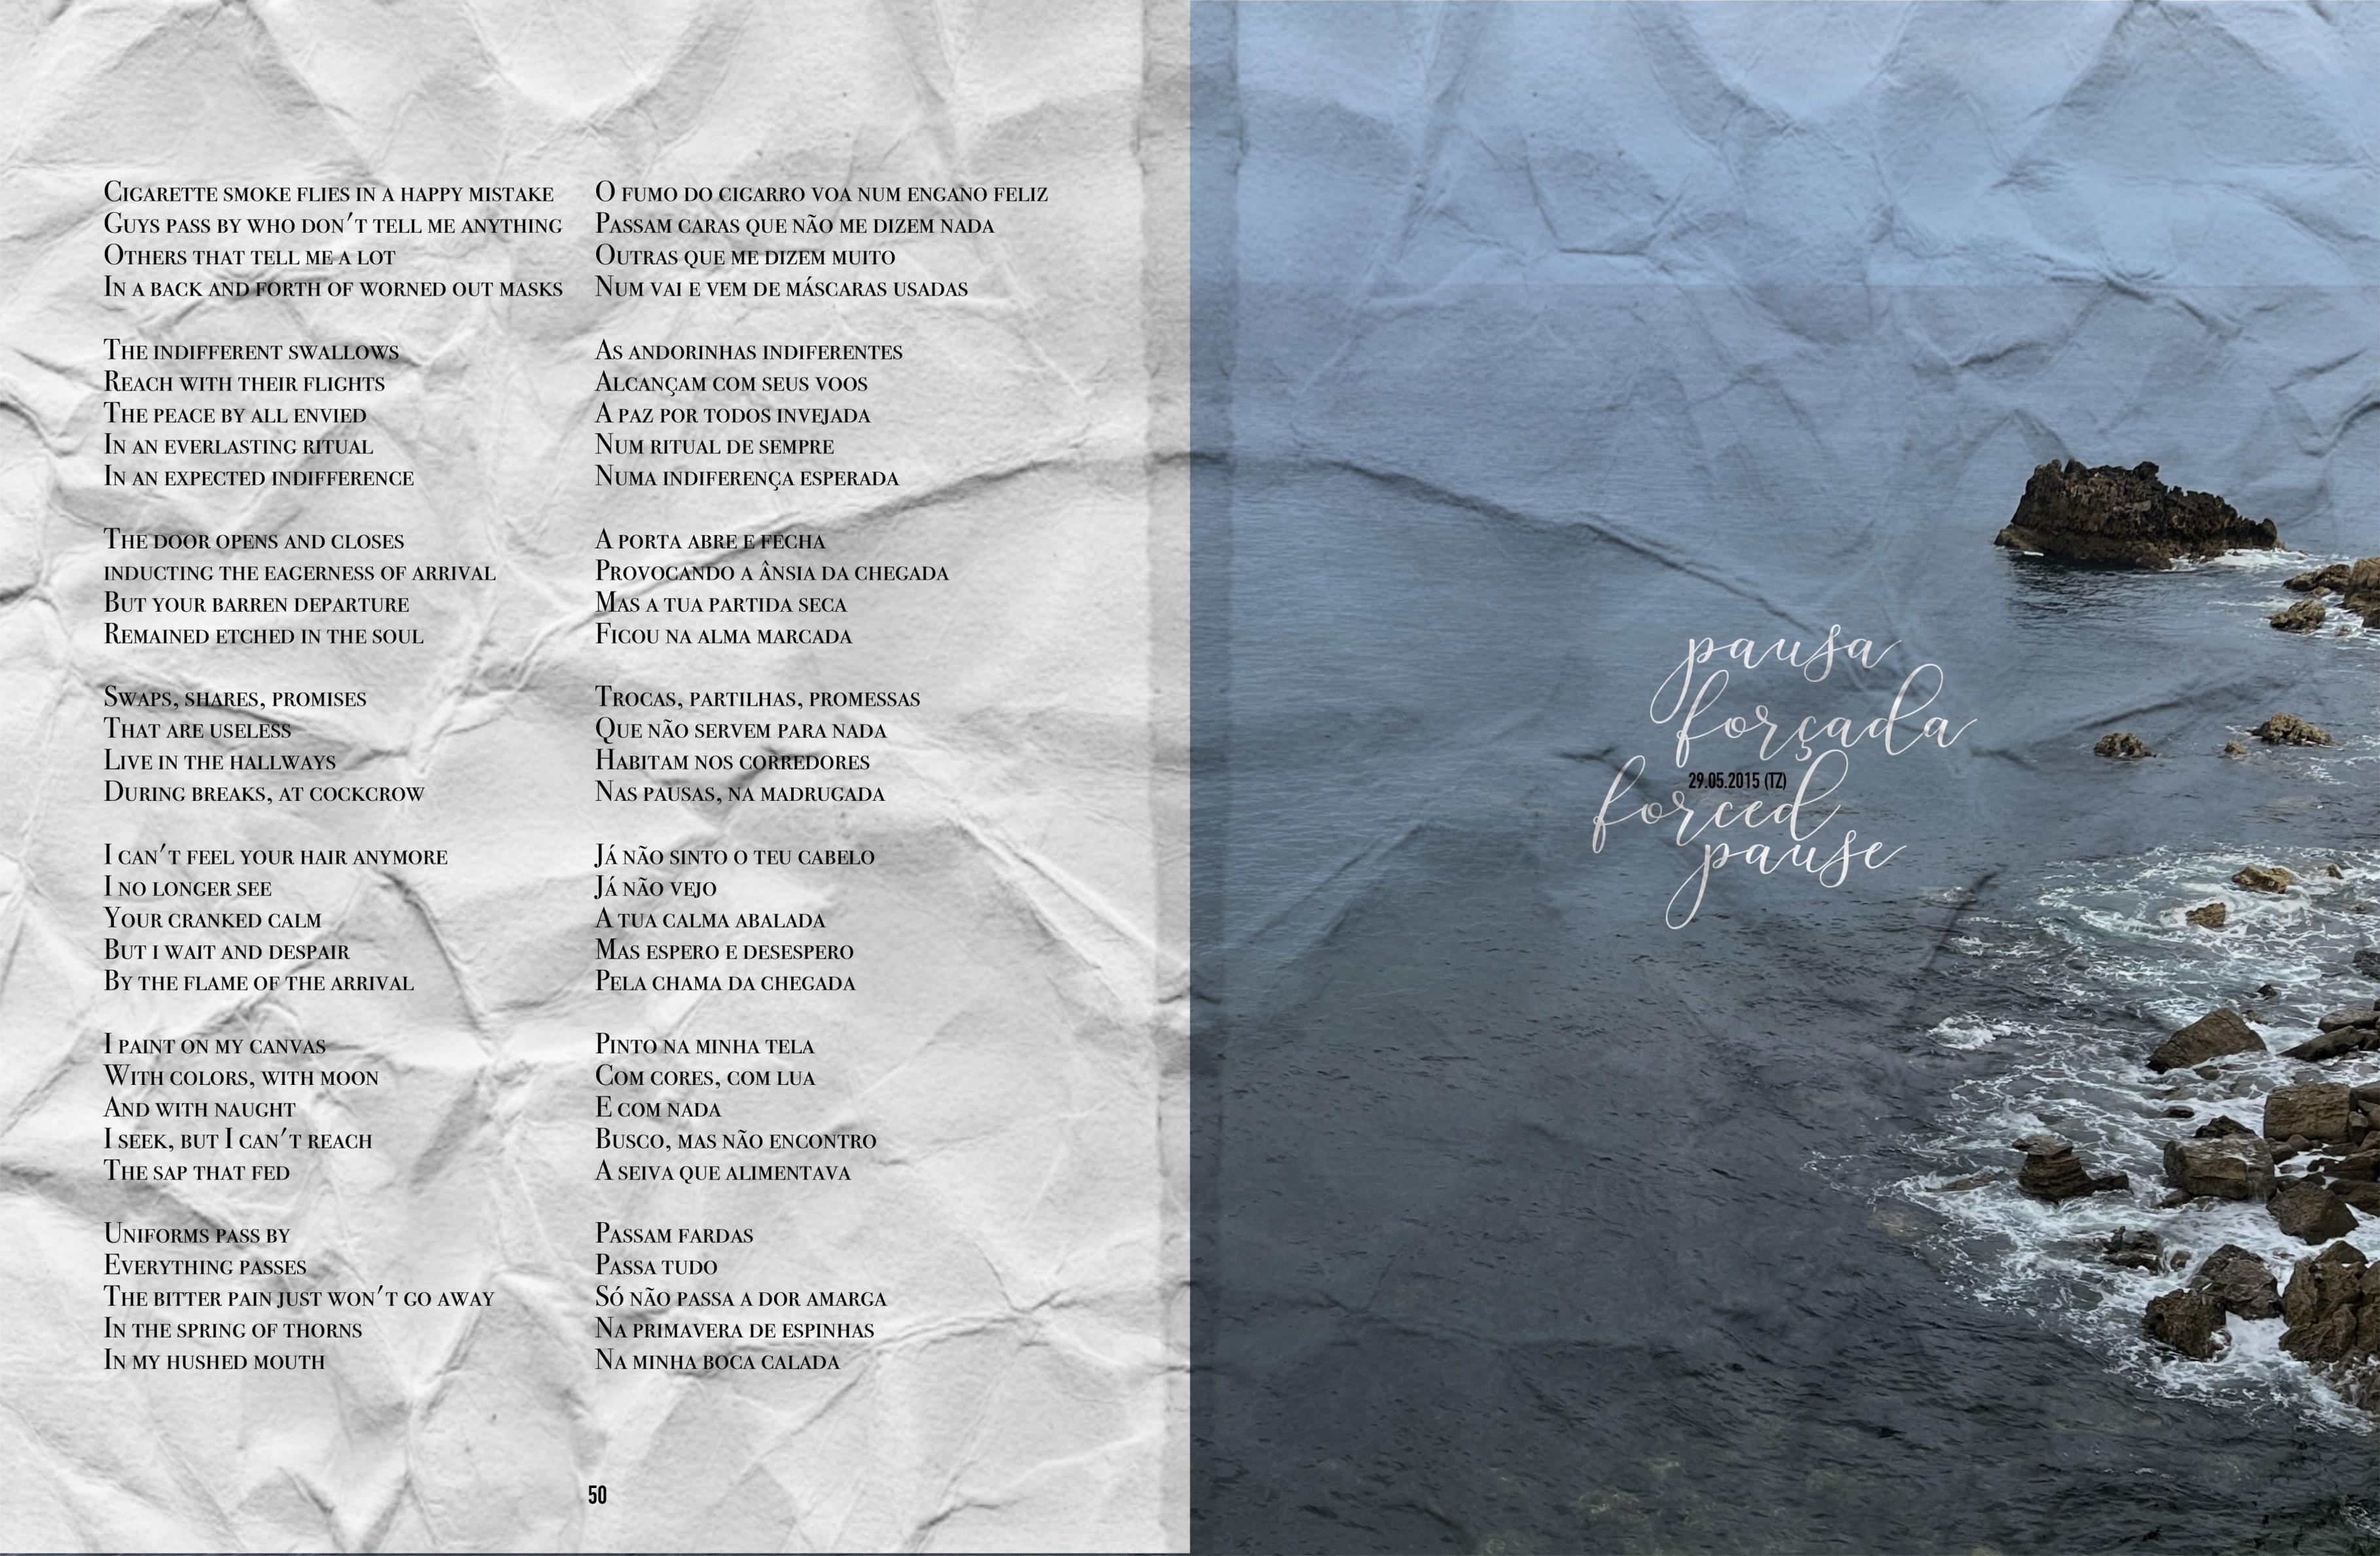 Cigarette smoke flies in a happy mistake
Guys pass by who don't tell me anything
Others that tell me a lot
In a back and forth of worned out masks

The indifferent swallows
Reach with their flights
The peace by all envied
In an everlasting ritual
In an expected indifference

The door opens and closes
inducting the eagerness of arrival
But your barren departure
Remained etched in the soul

Swaps, shares, promises
That are useless
Live in the hallways
During breaks, at cockcrow

I can't feel your hair anymore
I no longer see
Your cranked calm
But i wait and despair
By the flame of the arrival

I paint on my canvas
With colors, with moon
And with naught
I seek, but I can't reach
The sap that fed

Uniforms pass by
Everything passes
The bitter pain just won't go away
In the spring of thorns
In my hushed mouth

O fumo do cigarro voa num engano feliz
Passam caras que não me dizem nada
Outras que me dizem muito
Num vai e vem de máscaras usadas

As andorinhas indiferentes
Alcançam com seus voos
A paz por todos invejada
Num ritual de sempre
Numa indiferença esperada

A porta abre e fecha
Provocando a ânsia da chegada
Mas a tua partida seca
Ficou na alma marcada

Trocas, partilhas, promessas
Que não servem para nada
Habitam nos corredores
Nas pausas, na madrugada

Já não sinto o teu cabelo
Já não vejo
A tua calma abalada
Mas espero e desespero
Pela chama da chegada

Pinto na minha tela
Com cores, com lua
E com nada
Busco, mas não encontro
A seiva que alimentava

Passam fardas
Passa tudo
Só não passa a dor amarga
Na primavera de espinhas
Na minha boca calada

50

pausa
forçada
29.05.2015 (TZ)
forced
pause